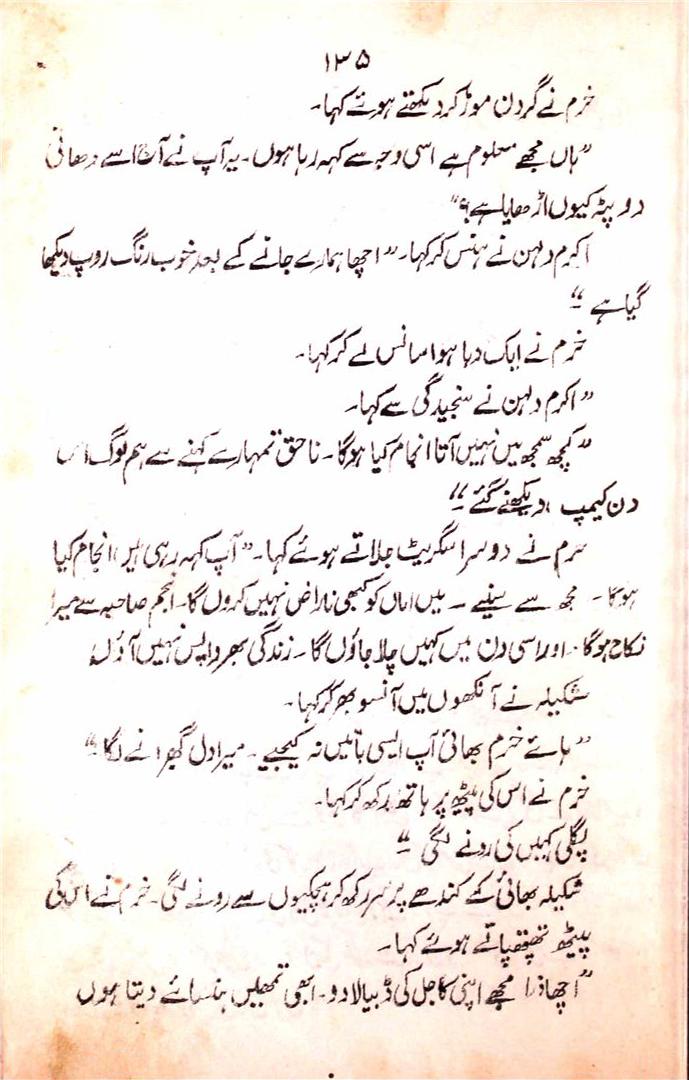 ۱۳۵
خرم نے گردن موڑ کر دیکھتے ہوئے کہا۔
”ہاں مجھے معلوم ہے اسی وجہ سے کہہ رہا ہوں۔ یہ آپ نے آج اسے دھانی
دوپٹہ کیوں اڑھایا ہے؟“
اکرم دلہن نے ہنس کر کہا۔ ”اچھا ہمارے جانے کے بعد خوب رنگ روپ دیکھا
گیا ہے“
خرم نے ایک دبا ہوا سانس لے کر کہا۔
”اکرم دلہن نے سنجیدگی سے کہا۔
”کچھ سمجھ میں نہیں آتا انجام کیا ہوگا۔ ناحق تمہارے کہنے سے ہم لوگ اس
دن کیمپ دیکھنے گئے“
خرم نے دوسرا سگریٹ جلاتے ہوئے کہا۔ ”آپ کہہ رہی ہیں انجام کیا
ہوگا۔ مجھ سے سنیے۔ میں اماں کو کبھی ناراض نہیں کروں گا۔ انجم صاحبہ سے میرا
نکاح ہوگا۔ اور اسی دن میں کہیں چلا جاؤں گا۔ زندگی بھر واپس نہیں آؤں
شکیلہ نے آنکھوں میں آنسو بھر کر کہا۔
”ہائے خرم بھائی آپ ایسی باتیں نہ کیجیے۔ میرا دل گھبرانے لگا“
خرم نے اس کی پیٹھ پر ہاتھ رکھ کر کہا۔
پگلی کہیں کی رونے لگی“
شکیلہ بھائی کے کندھے پر سر رکھ کر ہچکیوں سے رونے لگی۔ خرم نے اس کی
پیٹھ تھپتھپاتے ہوئے کہا۔
”اچھا ذرا مجھے اپنی کاجل کی ڈبیا لا دو۔ ابھی تمھیں ہنسائے دیتا ہوں